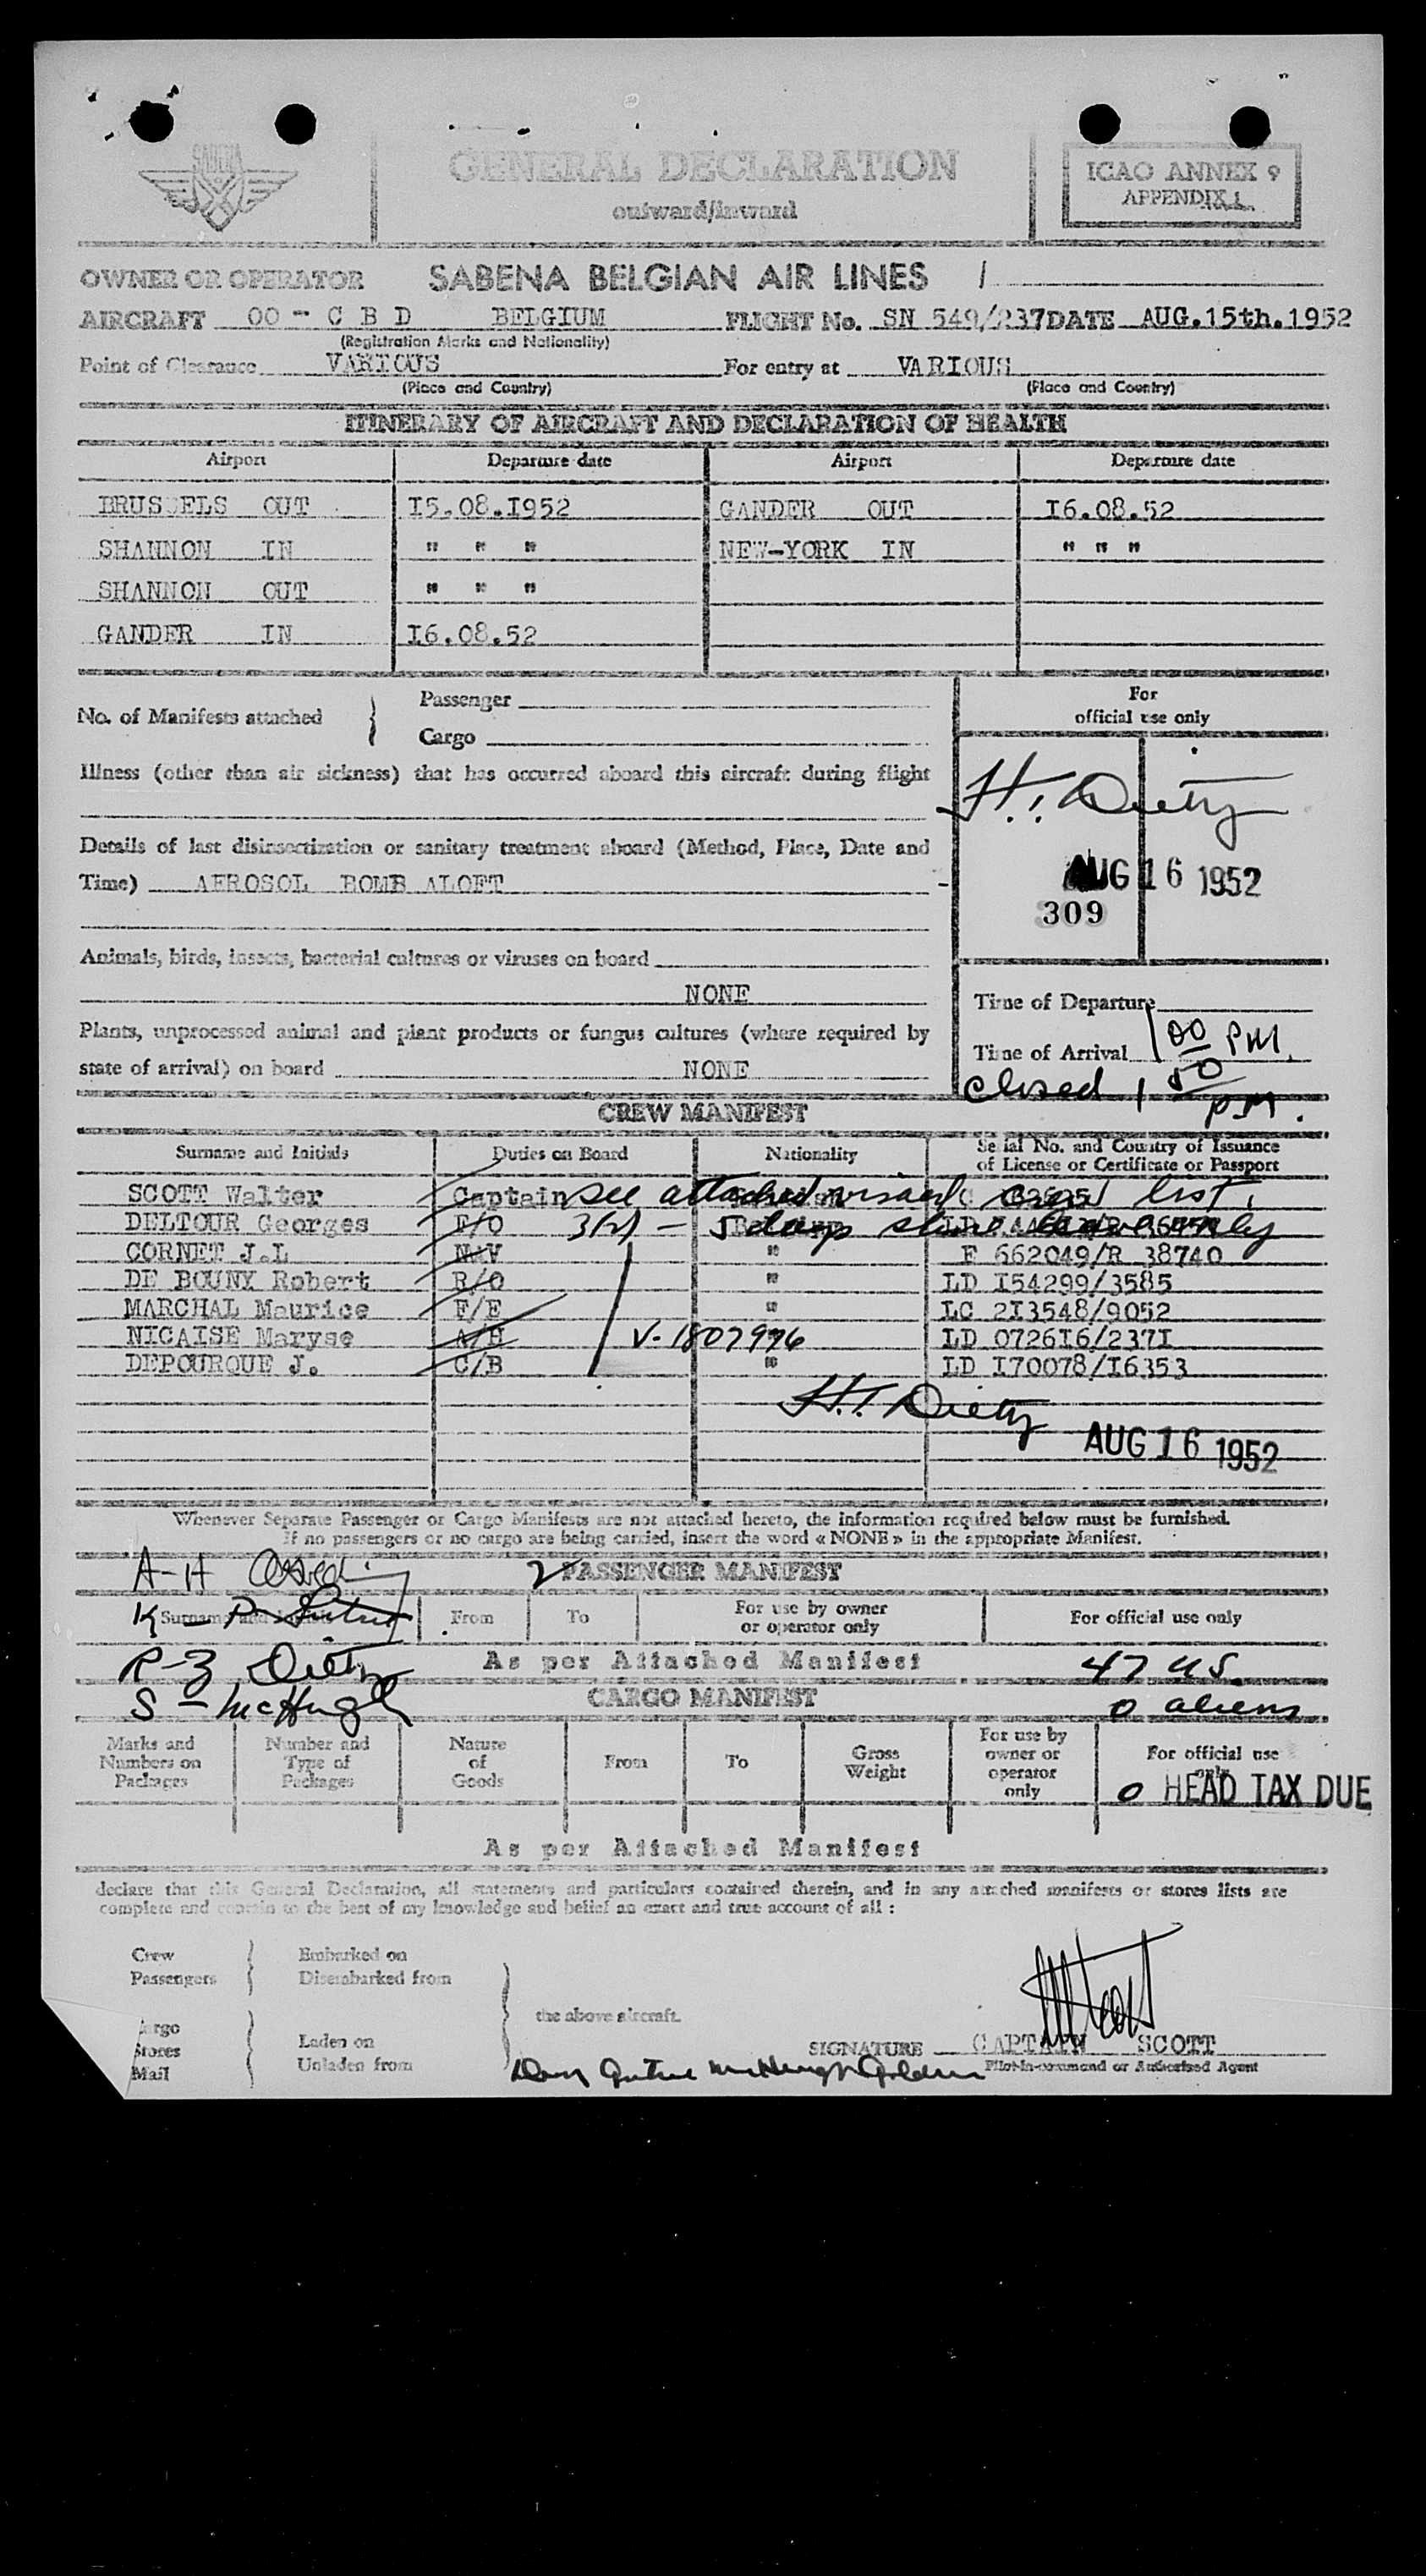 SABENA
GENERAL DECLARATION
outward/inward
ICAO ANNEX 9
APPENDIX 1.
OWNER OR OPERATOR SABENA BELGIAN AIR LINES /
AIRCRAFT OO - C B D BELGIUM FLIGHT No. SN 549/237 DATE AUG.15th.1952
(Registration Marks and Nationality)
Point of Clearance VARIOUS For entry at VARIOUS
(Place and Country) (Place and Country)
ITINERARY OF AIRCRAFT AND DECLARATION OF HEALTH
Airport Departure date Airport Departure date
BRUSSELS OUT I5.08.I952 GANDER OUT I6.08.52
SHANNON IN " " " NEW-YORK IN " " "
SHANNON OUT " " "
GANDER IN I6.08.52
No. of Manifests attached } Passenger
Cargo
For
official use only
Illness (other than air sickness) that has occurred aboard this aircraft during flight
H.T. Dietz
Details of last disinsectization or sanitary treatment aboard (Method, Place, Date and
Time) AEROSOL BOMB ALOFT
AUG 16 1952
309
Animals, birds, insects, bacterial cultures or viruses on board
NONE
Time of Departure
Plants, unprocessed animal and plant products or fungus cultures (where required by
state of arrival) on board NONE
Time of Arrival 1 00 PM.
closed 1 50 PM.
CREW MANIFEST
Surname and Initials Duties on Board Nationality Serial No. and Country of Issuance
of License or Certificate or Passport
SCOTT Walter Captain see attached crew list.
DELTOUR Georges F/O 3(2) - 5 days only
CORNET J.L NAV " F 662049/R 38740
DE BOUNY Robert R/O " LD I54299/3585
MARCHAL Maurice F/E " LC 2I3548/9052
NICAISE Maryse A/H V-1807996 LD 0726I6/237I
DEPOURQUE J. C/B " LD I70078/I6353
H.T. Dietz
AUG 16 1952
Whenever Separate Passenger or Cargo Manifests are not attached hereto, the information required below must be furnished.
If no passengers or no cargo are being carried, insert the word « NONE » in the appropriate Manifest.
A-H
2 PASSENGER MANIFEST
K - P
Surname and Initials From To For use by owner
or operator only For official use only
R-Z Dietz As per Attached Manifest 47 US
S - McHugh CARGO MANIFEST 0 aliens
Marks and
Numbers on
Packages
Number and
Type of
Packages
Nature
of
Goods
From To Gross
Weight
For use by
owner or
operator
only
For official use
only
0 HEAD TAX DUE
As per Attached Manifest
declare that this General Declaration, all statements and particulars contained therein, and in any attached manifests or stores lists are
complete and contain to the best of my knowledge and belief an exact and true account of all :
Crew
Passengers } Embarked on
Disembarked from
the above aircraft.
Cargo
Stores
Mail } Laden on
Unladen from
SIGNATURE CAPTAIN SCOTT
Pilot-in-command or Authorised Agent